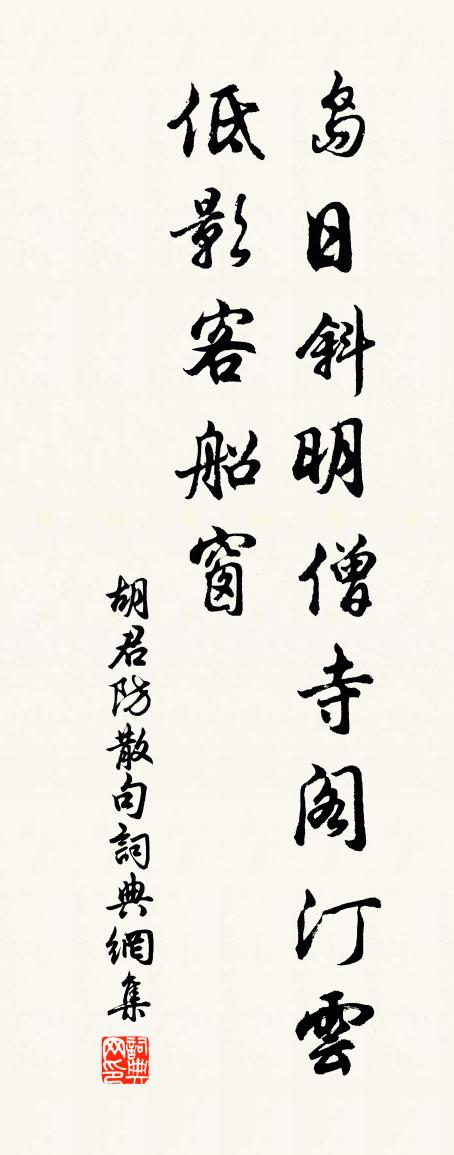 島日斜明僧寺閣汀雲
低影客船窗
胡君防散句詞典網集
詞典网印